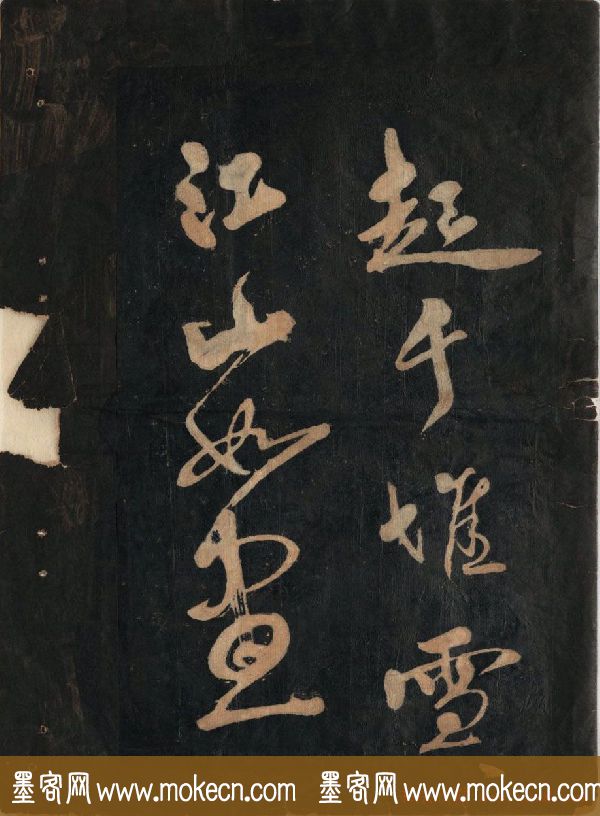 起千堆雪
江山如畫
墨客网 www.mokecn.com 墨客网 www.mokecn.com